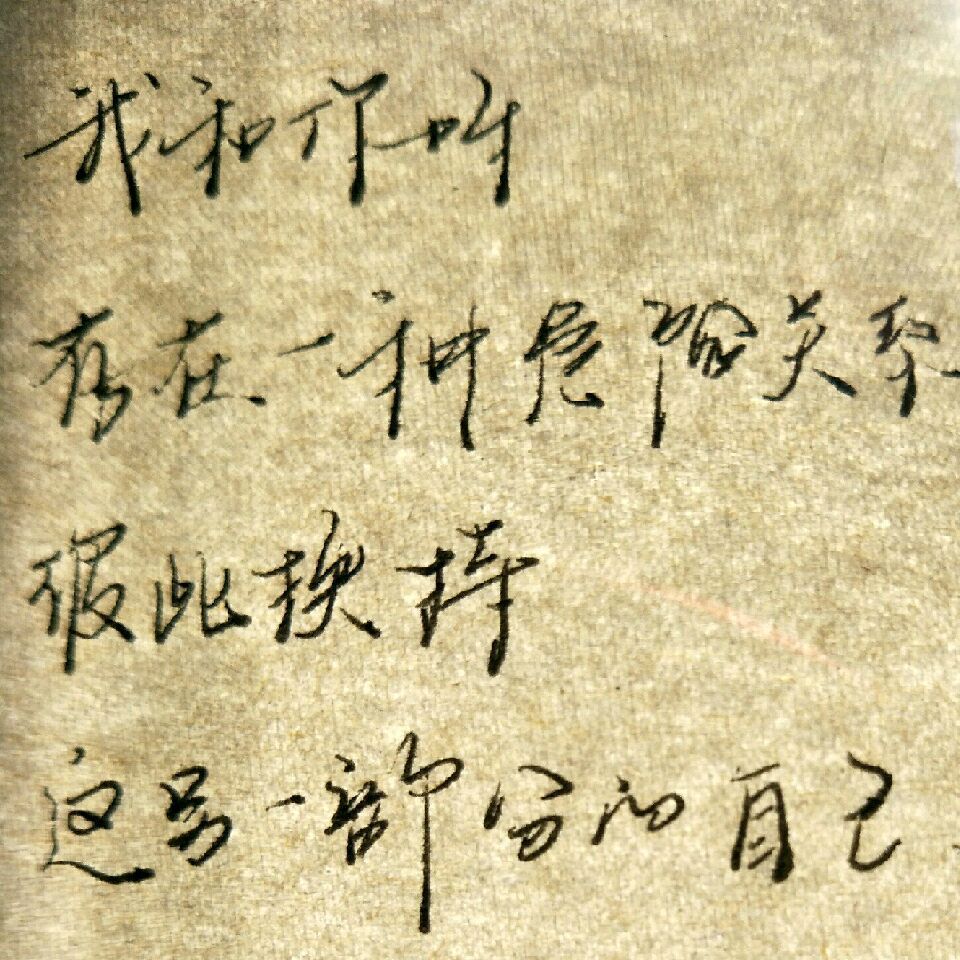 我和你呀
存在一种危险关系
彼此挟持
这另一部分的自己